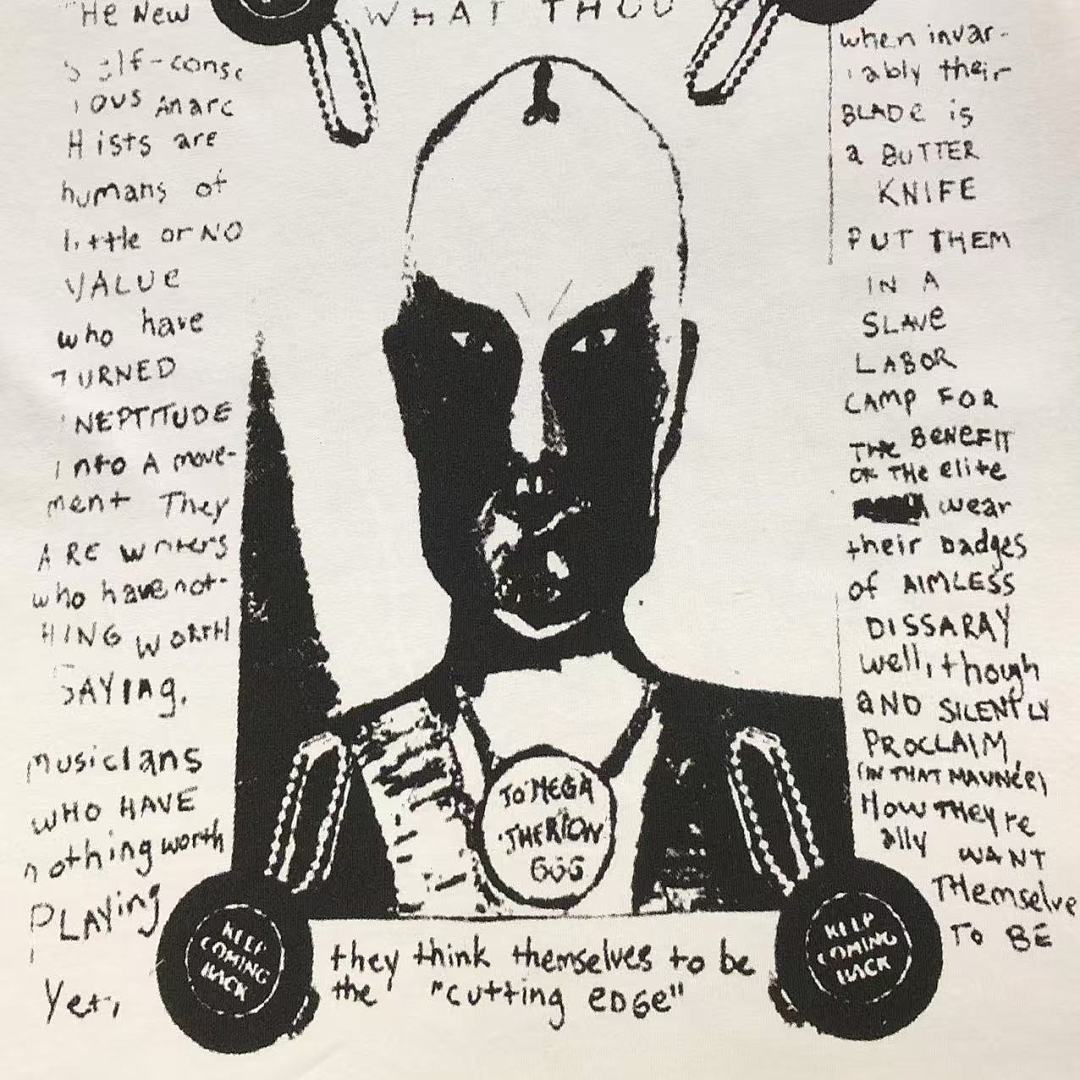 WHAT THOU
He New
self-consc
ious Anarc
Hists are
humans of
little or NO
VALUE
who have
TURNED
INEPTITUDE
into A move-
ment They
ARE writers
who have not-
HING WORTH
SAYING.
musicians
WHO HAVE
nothing worth
PLAYING
Yet,
they think themselves to be
the "cutting EDGE"
when invar-
iably their
BLADE is
a BUTTER
KNIFE
PUT THEM
IN A
SLAVE
LABOR
CAMP FOR
THE BENEFIT
OF THE elite
wear
their badges
of AIMLESS
DISSARAY
well, though
AND SILENTLY
PROCLAIM
(IN THAT MANNER)
How THEY re
ally WANT
THemselve
TO BE
TO MEGA
THERION
666
KEEP
COMING
BACK
KEEP
COMING
BACK